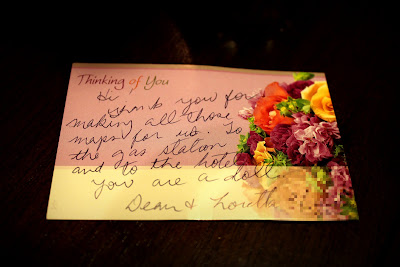 Thinking of You
Hi
Thank you for
making all those
maps for us. To
the gas station
and to the hotel
You are a doll
Dean & Loretta